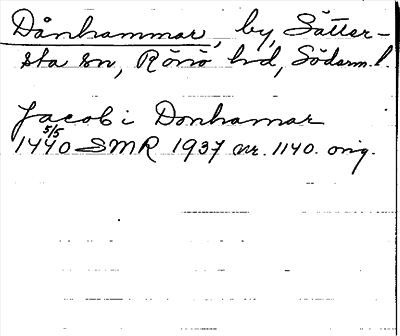 Dånhammar, by, Sätter-
sta sn, Rönö hd, Söderm. l.
Jacob i Donhamar
5/5
1440 SMR 1937 nr. 1140. orig.